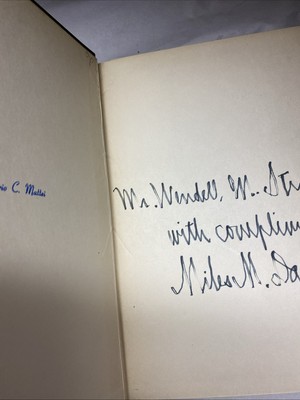 C. Mattei
Mr. Wendell, M. St
with complim
Niles M. Da